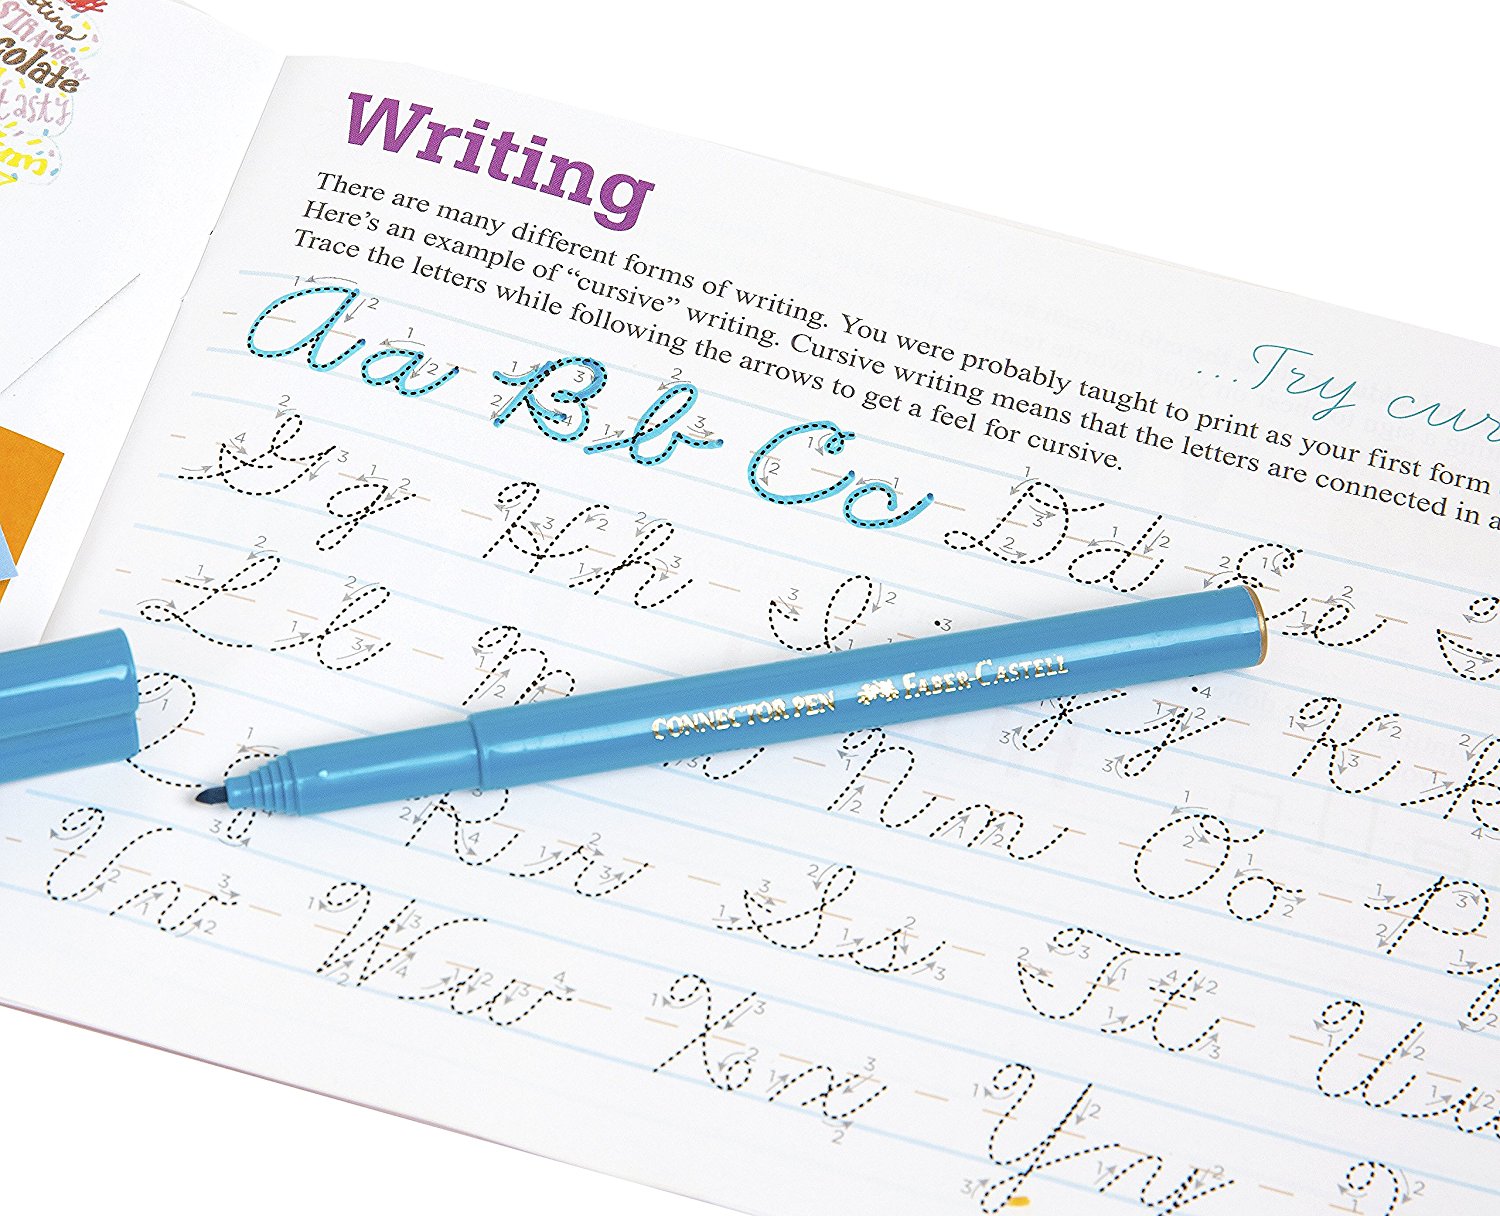 sting
STRAWBERRY
colate
tasty
Writing
There are many different forms of writing. You were probably taught to print as your first form
Here's an example of “cursive” writing. Cursive writing means that the letters are connected in a
Trace the letters while following the arrows to get a feel for cursive.
...Try cur
Aa Bb Cc Dd Ee
Gg Hh I
Ll m j Kk
n m Oo P
R r
Vv Ww Ss Tt Uu
Xx Yy
CONNECTOR PEN FABER-CASTELL